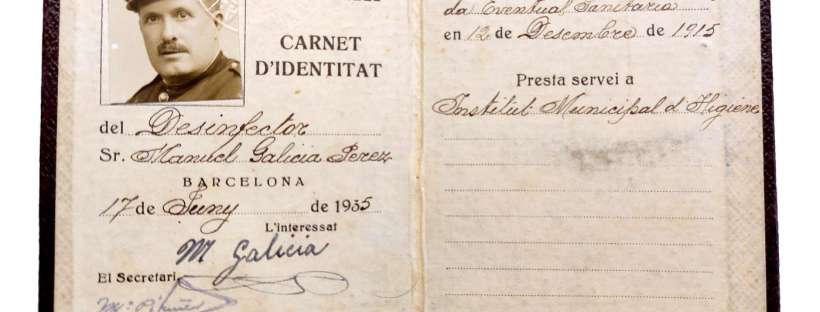 CARNET
D'IDENTITAT
del Desinfector
Sr. Manuel Galicia Perez
BARCELONA
17 de Juny de 1935
L'interessat
M Galicia
El Secretari,
da Eventual Sanitaria
en 12 de Desembre de 1915
Presta servei a
Institut Municipal d'Higiene